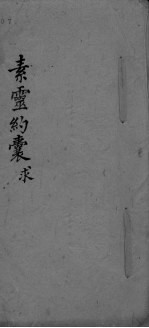 素靈約囊 求